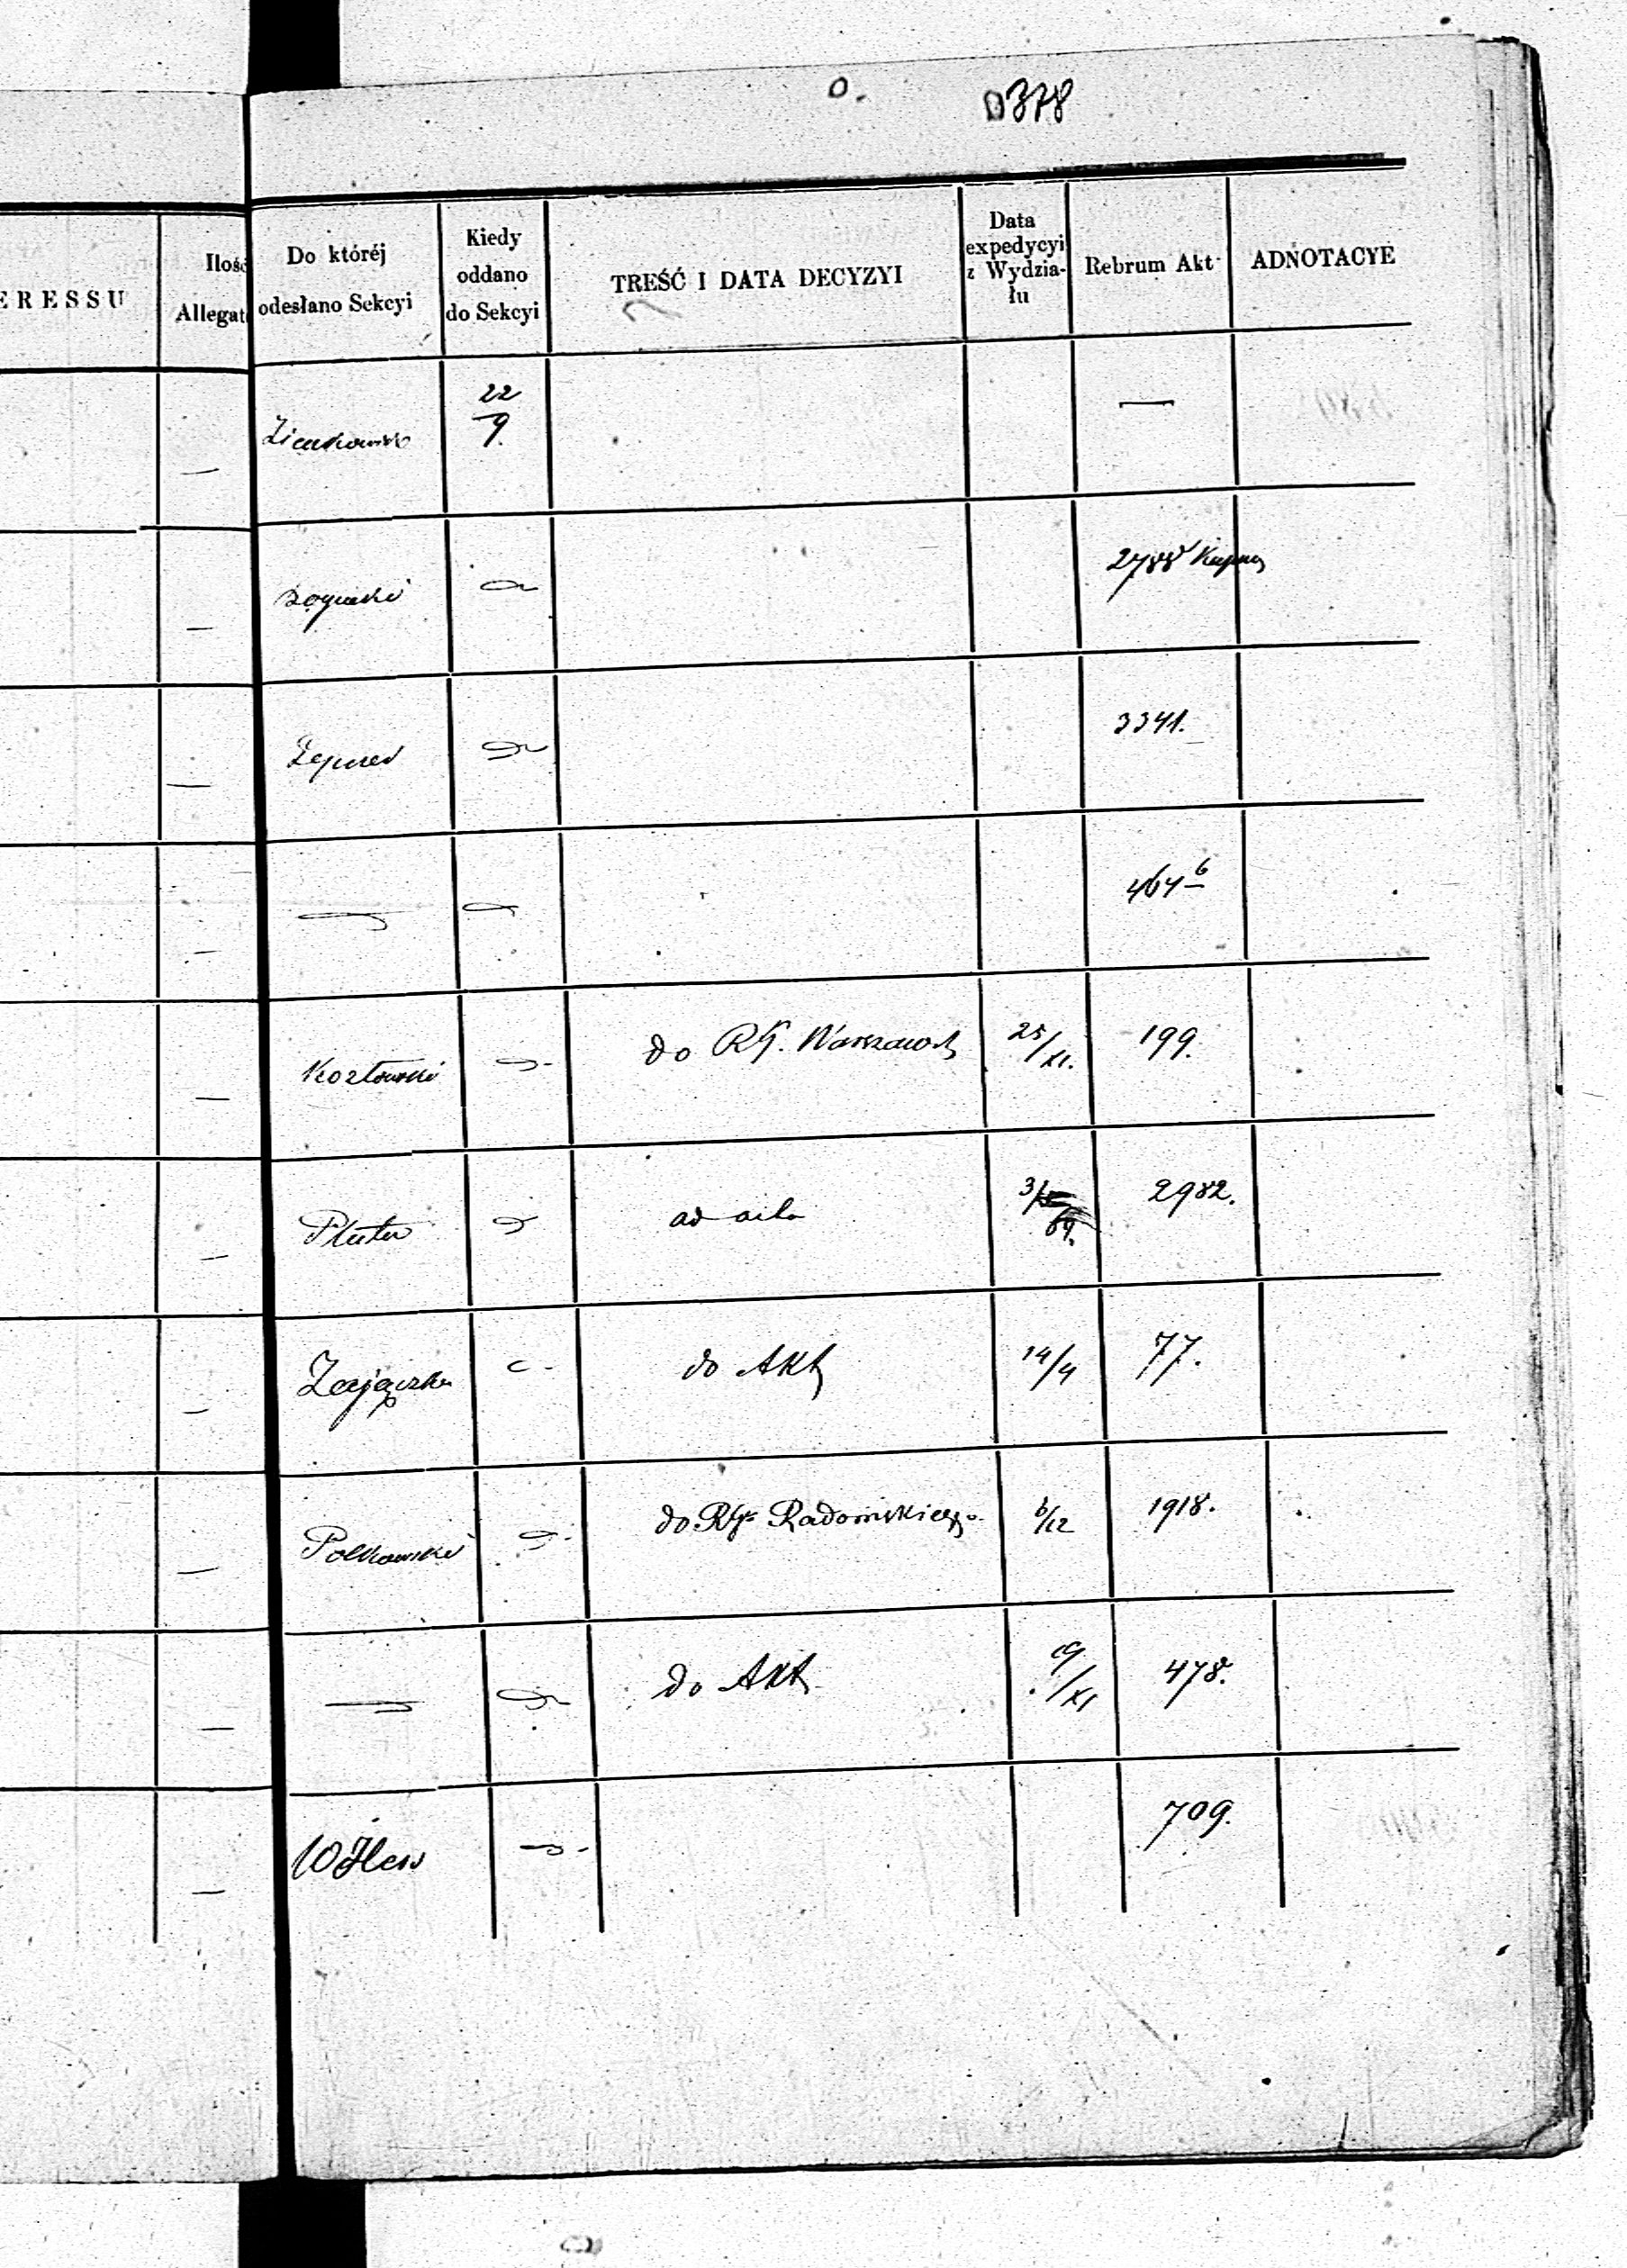 378
ERESSU
Ilość
Allegat
Do któréj
odesłano Sekcyi
Kiedy
oddano
do Sekcyi
TREŚĆ I DATA DECYZYI
Data
expedycyi
z Wydzia-
łu
Rebrum Akt
ADNOTACYE
22
9.
—
—
—
3341.
—
464 b
—
Kozłowski
do RG. Warszawsk
25/XI.
199.
—
Pluter
ad acta
3/
69.
2982.
—
Zajączka
do Akt
14/4
77.
—
Polkowski
do RG Radomskiego
6/12
1918.
—
do Akt
19/XI
478.
—
709.
—